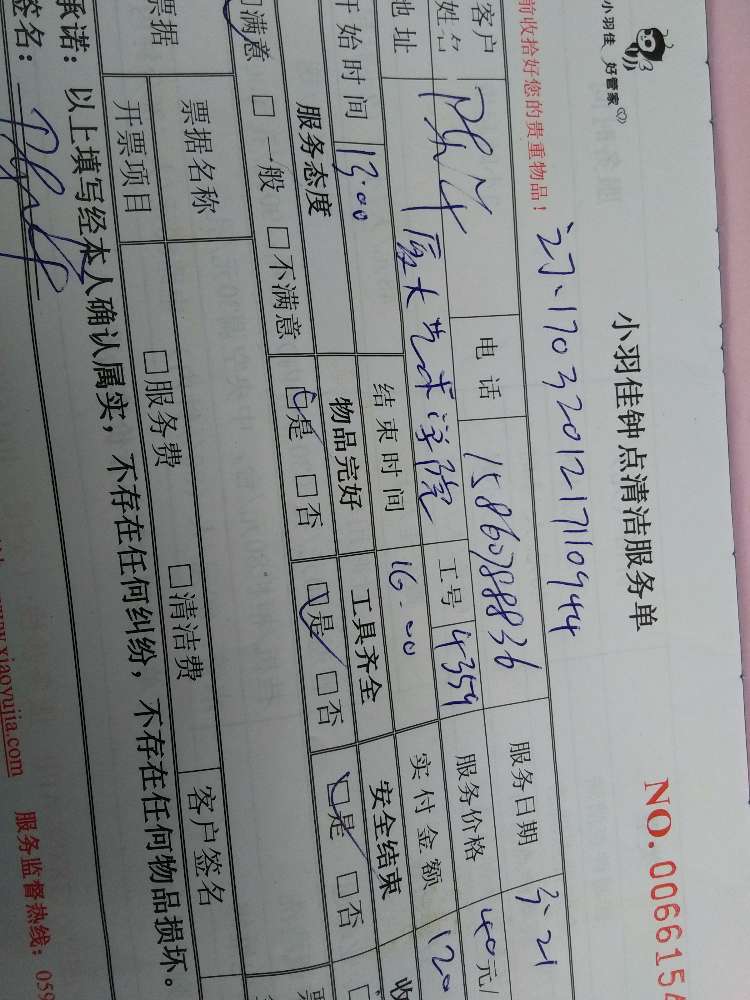 小羽佳 好管家
小羽佳钟点清洁服务单
NO.0066154
前收拾好您的贵重物品！
170320121710944
客户姓名
电话 15860788836
服务日期 3.21
地址 厦大艺术学院
工号 4359
服务价格 40元/
开始时间 13.00
结束时间 16.00
实付金额 120
服务态度 物品完好 工具齐全 安全结束
满意 □一般 □不满意 □是 □否 □是 □否 □是 □否
票据
票据名称 □服务费 □清洁费 客户签名
开票项目
承诺：以上填写经本人确认属实，不存在任何纠纷，不存在任何物品损坏。
签名：
www.xiaoyujia.com 服务监督热线：059